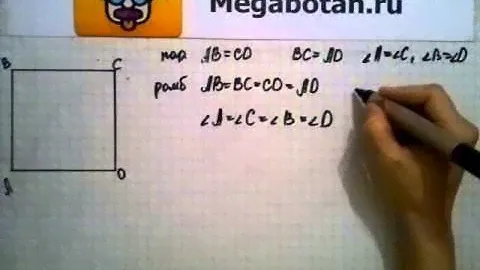 Megabotan.ru
пар AB=CD BC=AD ∠A=∠C, ∠B=∠D
ромб AB=BC=CD=AD
∠A=∠C=∠B=∠D
B C
A D